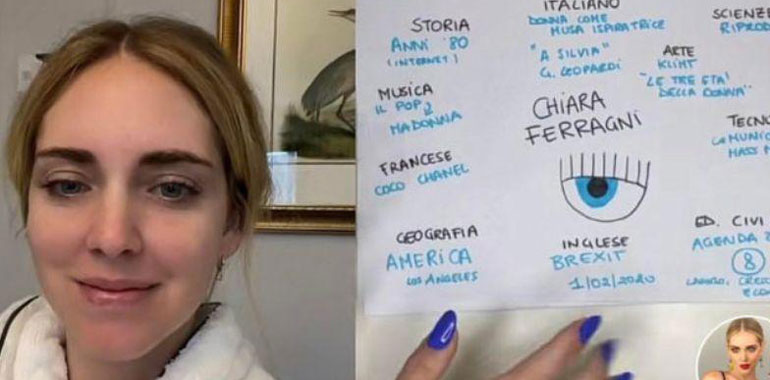 STORIA
ANNI '80
(INTERNET)
ITALIANO
DONNA COME
MUSA ISPIRATRICE
"A SILVIA"
G. LEOPARDI
SCIENZE
RIPROD
ARTE
KLIMT
"LE TRE ETA'
DELLA DONNA"
MUSICA
IL POP
MADONNA
CHIARA
FERRAGNI
TECNO
COMUNIC
MASS M
FRANCESE
COCO CHANEL
GEOGRAFIA
AMERICA
LOS ANGELES
INGLESE
BREXIT
1/02/2020
ED. CIVI
AGENDA 2
8
LAVORO, CRESC
ECON